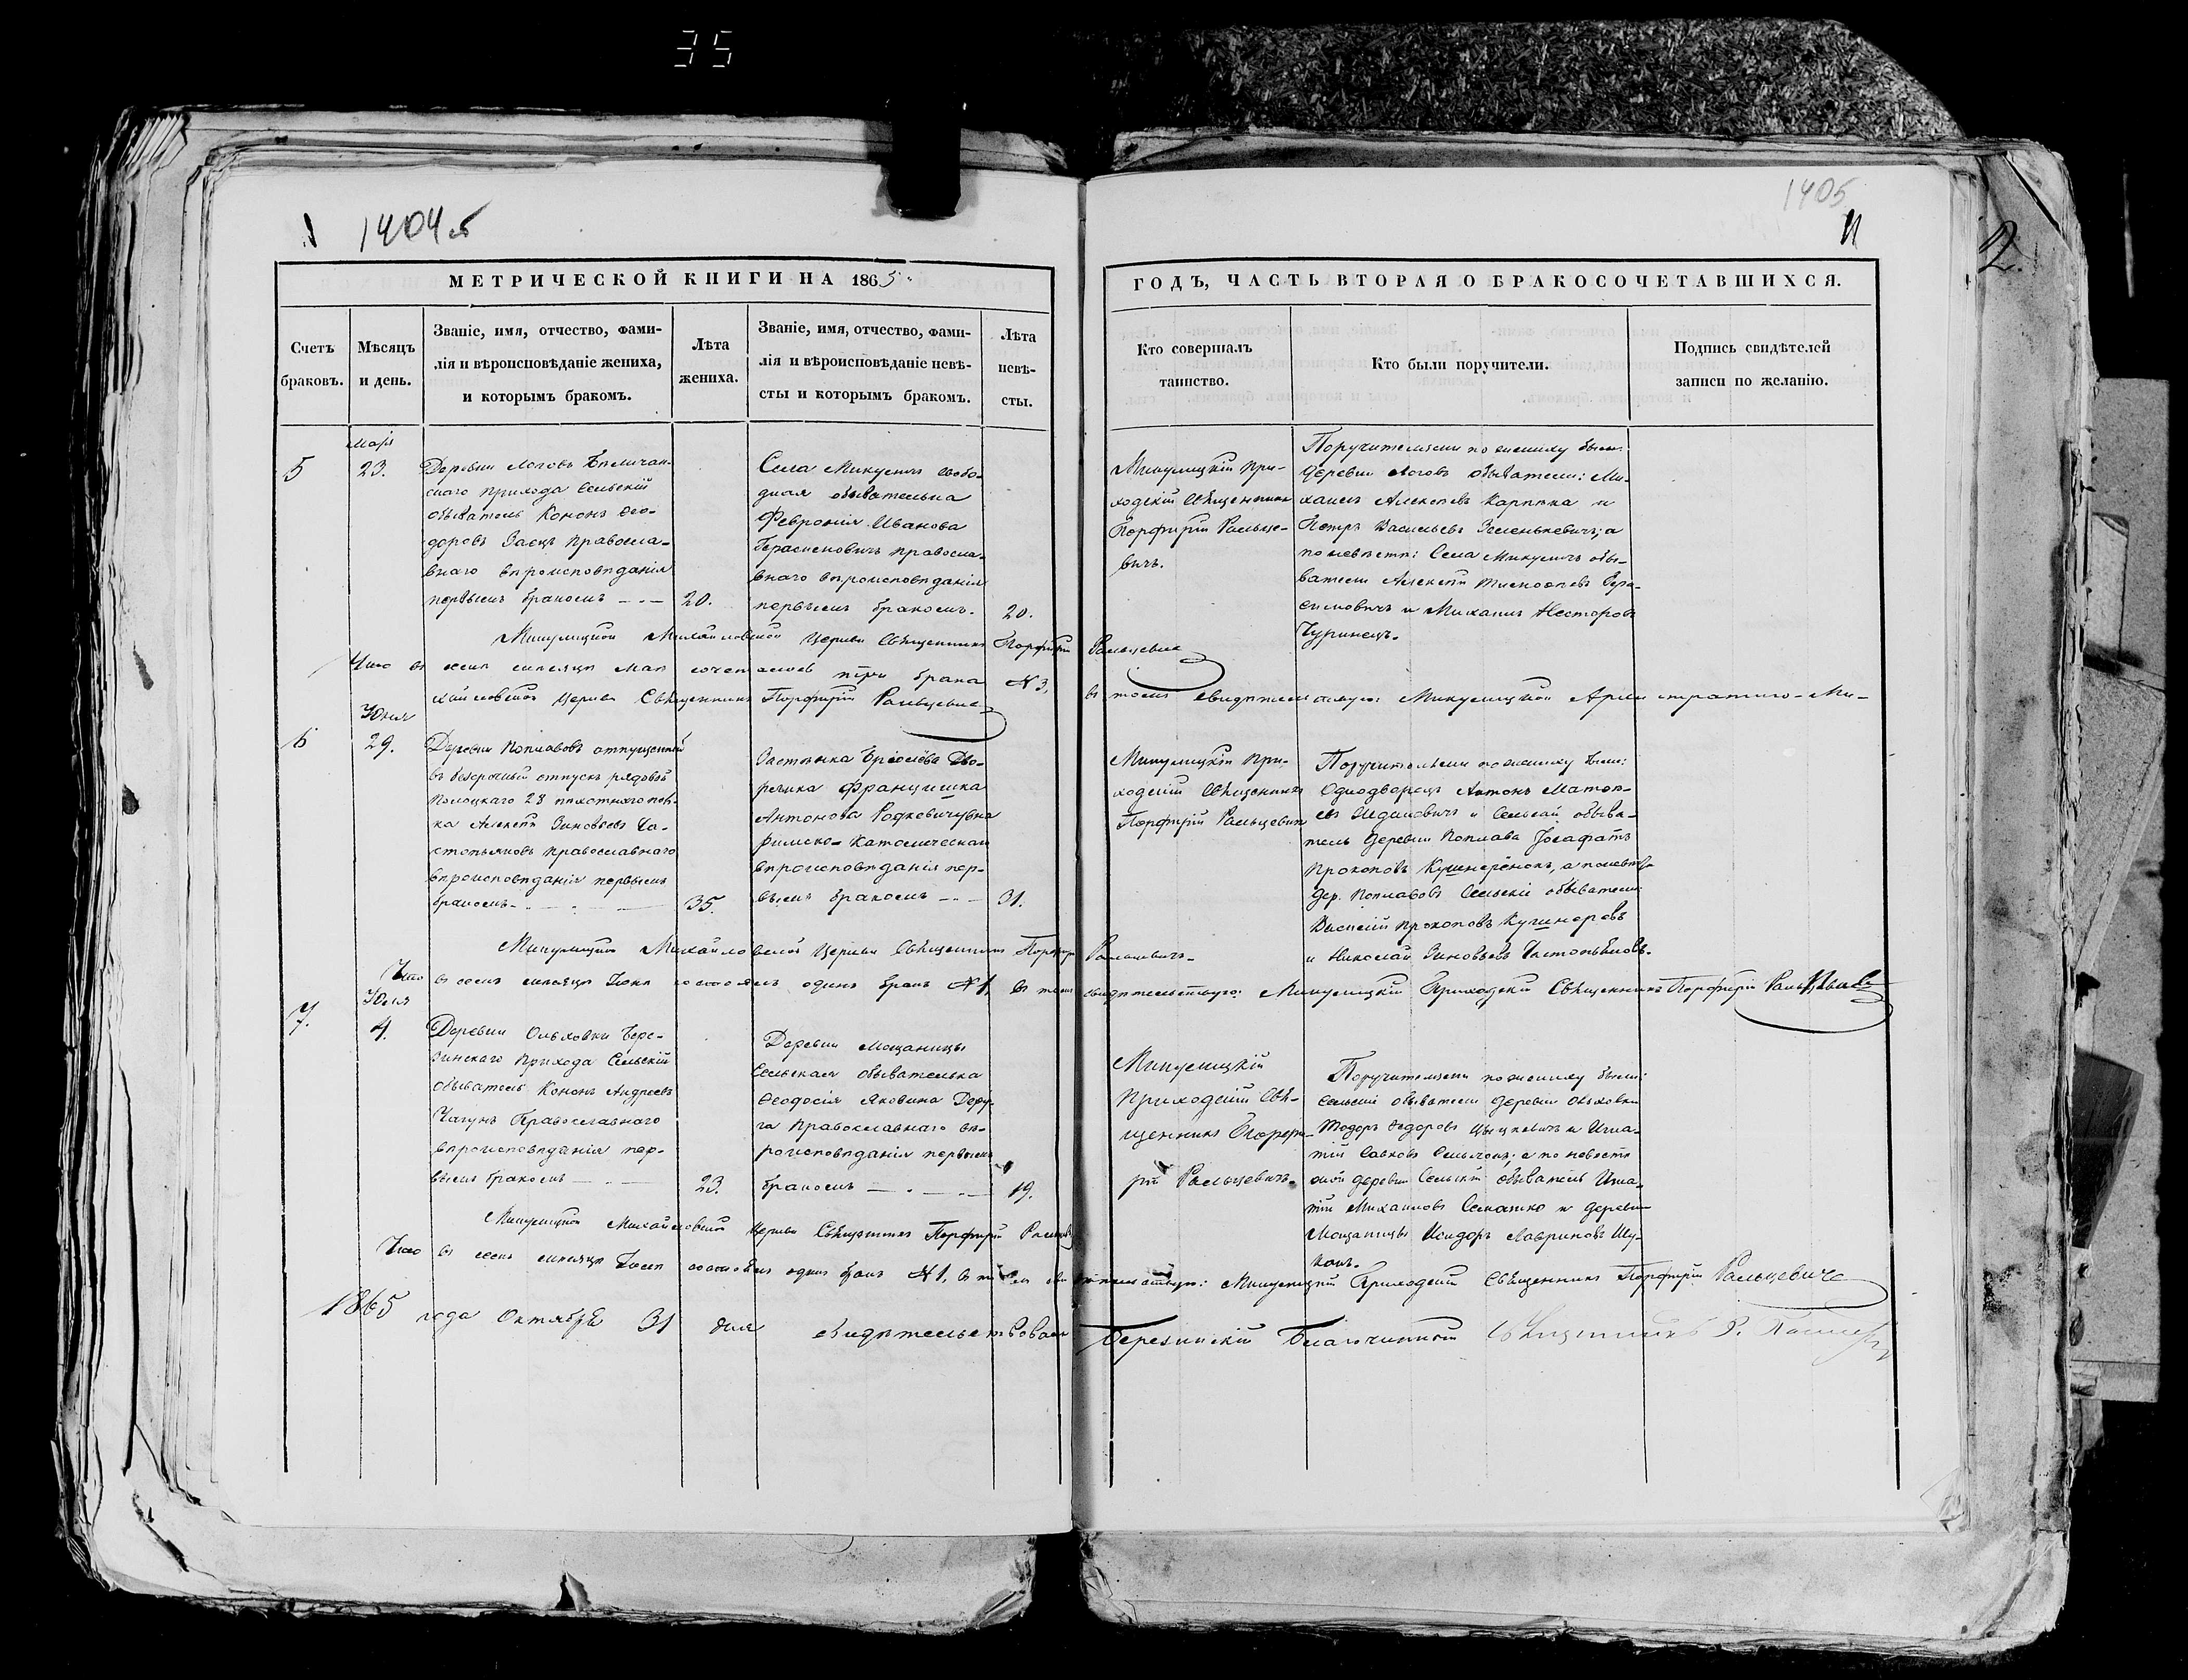 35
1404 об
1405
11
2.
МЕТРИЧЕСКОЙ КНИГИ НА 1865
ГОДЪ, ЧАСТЬ ВТОРАЯ О БРАКОСОЧЕТАВШИХСЯ.
Счетъ
браковъ.
Мѣсяцъ
и день.
Званіе, имя, отчество, фами-
лія и вѣроисповѣданіе жениха,
и которымъ бракомъ.
Лѣта
жениха.
Званіе, имя, отчество, фами-
лія и вѣроисповѣданіе невѣ-
сты и которымъ бракомъ.
Лѣта
невѣ-
сты.
Кто совершалъ
таинство.
Кто были поручители.
Подпись свидѣтелей
записи по желанію.
5
Мая
23.
Деревни Логовъ Бѣличан-
скаго прихода Сельскій
обыватель Кононъ Ѳео-
доровъ Заецъ Правосла-
внаго вѣроисповѣданія
первымъ бракомъ
20.
Села Микуличъ свобо-
дная обывателька
Февронія Иванова
Герасимовичъ православ-
внаго вѣроисповѣданія
первымъ бракомъ.
20.
Микулицкій При-
ходскій Священникъ
Порфирій Ральце-
вичъ.
Поручителями по жениху были:
деревни Логовъ обыватели: Ми-
хаилъ Алексѣевъ Карпѣка и
Петръ Васильевъ Зеленькевичъ; а
по невѣстѣ: Села Микуличъ обы-
ватели Алексѣй Тимофеевъ Гера-
симовичъ и Михаилъ Несторовъ
Чуринецъ.
Микулицкой Михайловской Церкви Священникъ Порфирій Ральцевичъ
Что въ семъ мѣсяцѣ Маѣ сочеталось три брака № 3, въ томъ свидѣтельствую: Микулицкой Архистратиго-Ми-
хайловской Церкви Священникъ Порфирій Ральцевичъ
6
Юня
29.
Деревни Поплавовъ отпущенный
въ безсрочный отпускъ рядовой
Полоцкаго 28 пѣхотнаго пол-
ка Алексѣй Зиновьевъ Ча-
стопьяновъ Православнаго
вѣроисповѣданія первымъ
бракомъ
35.
Застѣнка Дво-
рянка Францишка
Антонова Родкевичувна
Римско-Католическаго
вѣроисповѣданія пер-
вымъ бракомъ
31.
Микулицкій При-
ходскій Священникъ
Порфирій Ральцевичъ
Поручителями по жениху были:
Однодворецъ Антонъ Матѳе-
евъ и Сельскій обыва-
тель деревни Поплава Іосафатъ
Прокоповъ Кушнерёнокъ, а по невѣстѣ
дер. Поплавовъ Сельскіе обыватели
Василій Прокоповъ Кушнеровъ
и Николай Зиновьевъ Частопьяновъ.
Микулицкой Михайловской Церкви Священникъ Порфирій Ральцевичъ.
Что въ семъ мѣсяцѣ Іюнѣ состоялся одинъ бракъ № 1, въ томъ свидѣтельствую: Микулицкій Приходскій Священникъ Порфирій Ральцевичъ
7.
Юля
4.
Деревни Ольховки Бере-
зинскаго Прихода Сельскій
обыватель Кононъ Андреевъ
Чагунъ Православнаго
вѣроисповѣданія пер-
вымъ бракомъ
23.
Деревни Мощаницы
Сельская обывателька
Ѳеодосія Яковина Деру-
га Православнаго вѣ-
роисповѣданія первымъ
бракомъ
19.
Микулицкій
Приходскій Свя-
щенникъ Порфи-
рій Ральцевичъ.
Поручителями по жениху были:
сельскіе обыватели деревни Ольховки
Тодоръ Ѳедоровъ и Игна-
тій Савковъ; а по невѣстѣ
оной деревни Сельскій обыватель Игна-
тій Михаиловъ Семашко и деревни
Мощаницы Исидоръ Лавриновъ Шу-
канъ.
Микулицкой Михайловской Церкви Священникъ Порфирій Ральцевичъ
Что въ семъ мѣсяцѣ Іюлѣ состоялся одинъ бракъ № 1, въ томъ свидѣтельствую: Микулицкій Приходскій Священникъ Порфирій Ральцевичъ
1865 года Октября 31 дня свидѣтельствовалъ Березинскій Благочинный Священникъ